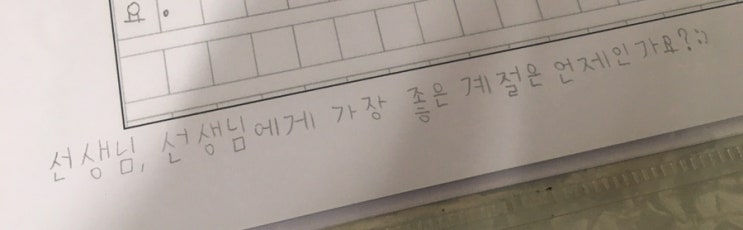 요.
선생님, 선생님에게 가장 좋은 계절은 언제인가요?:)